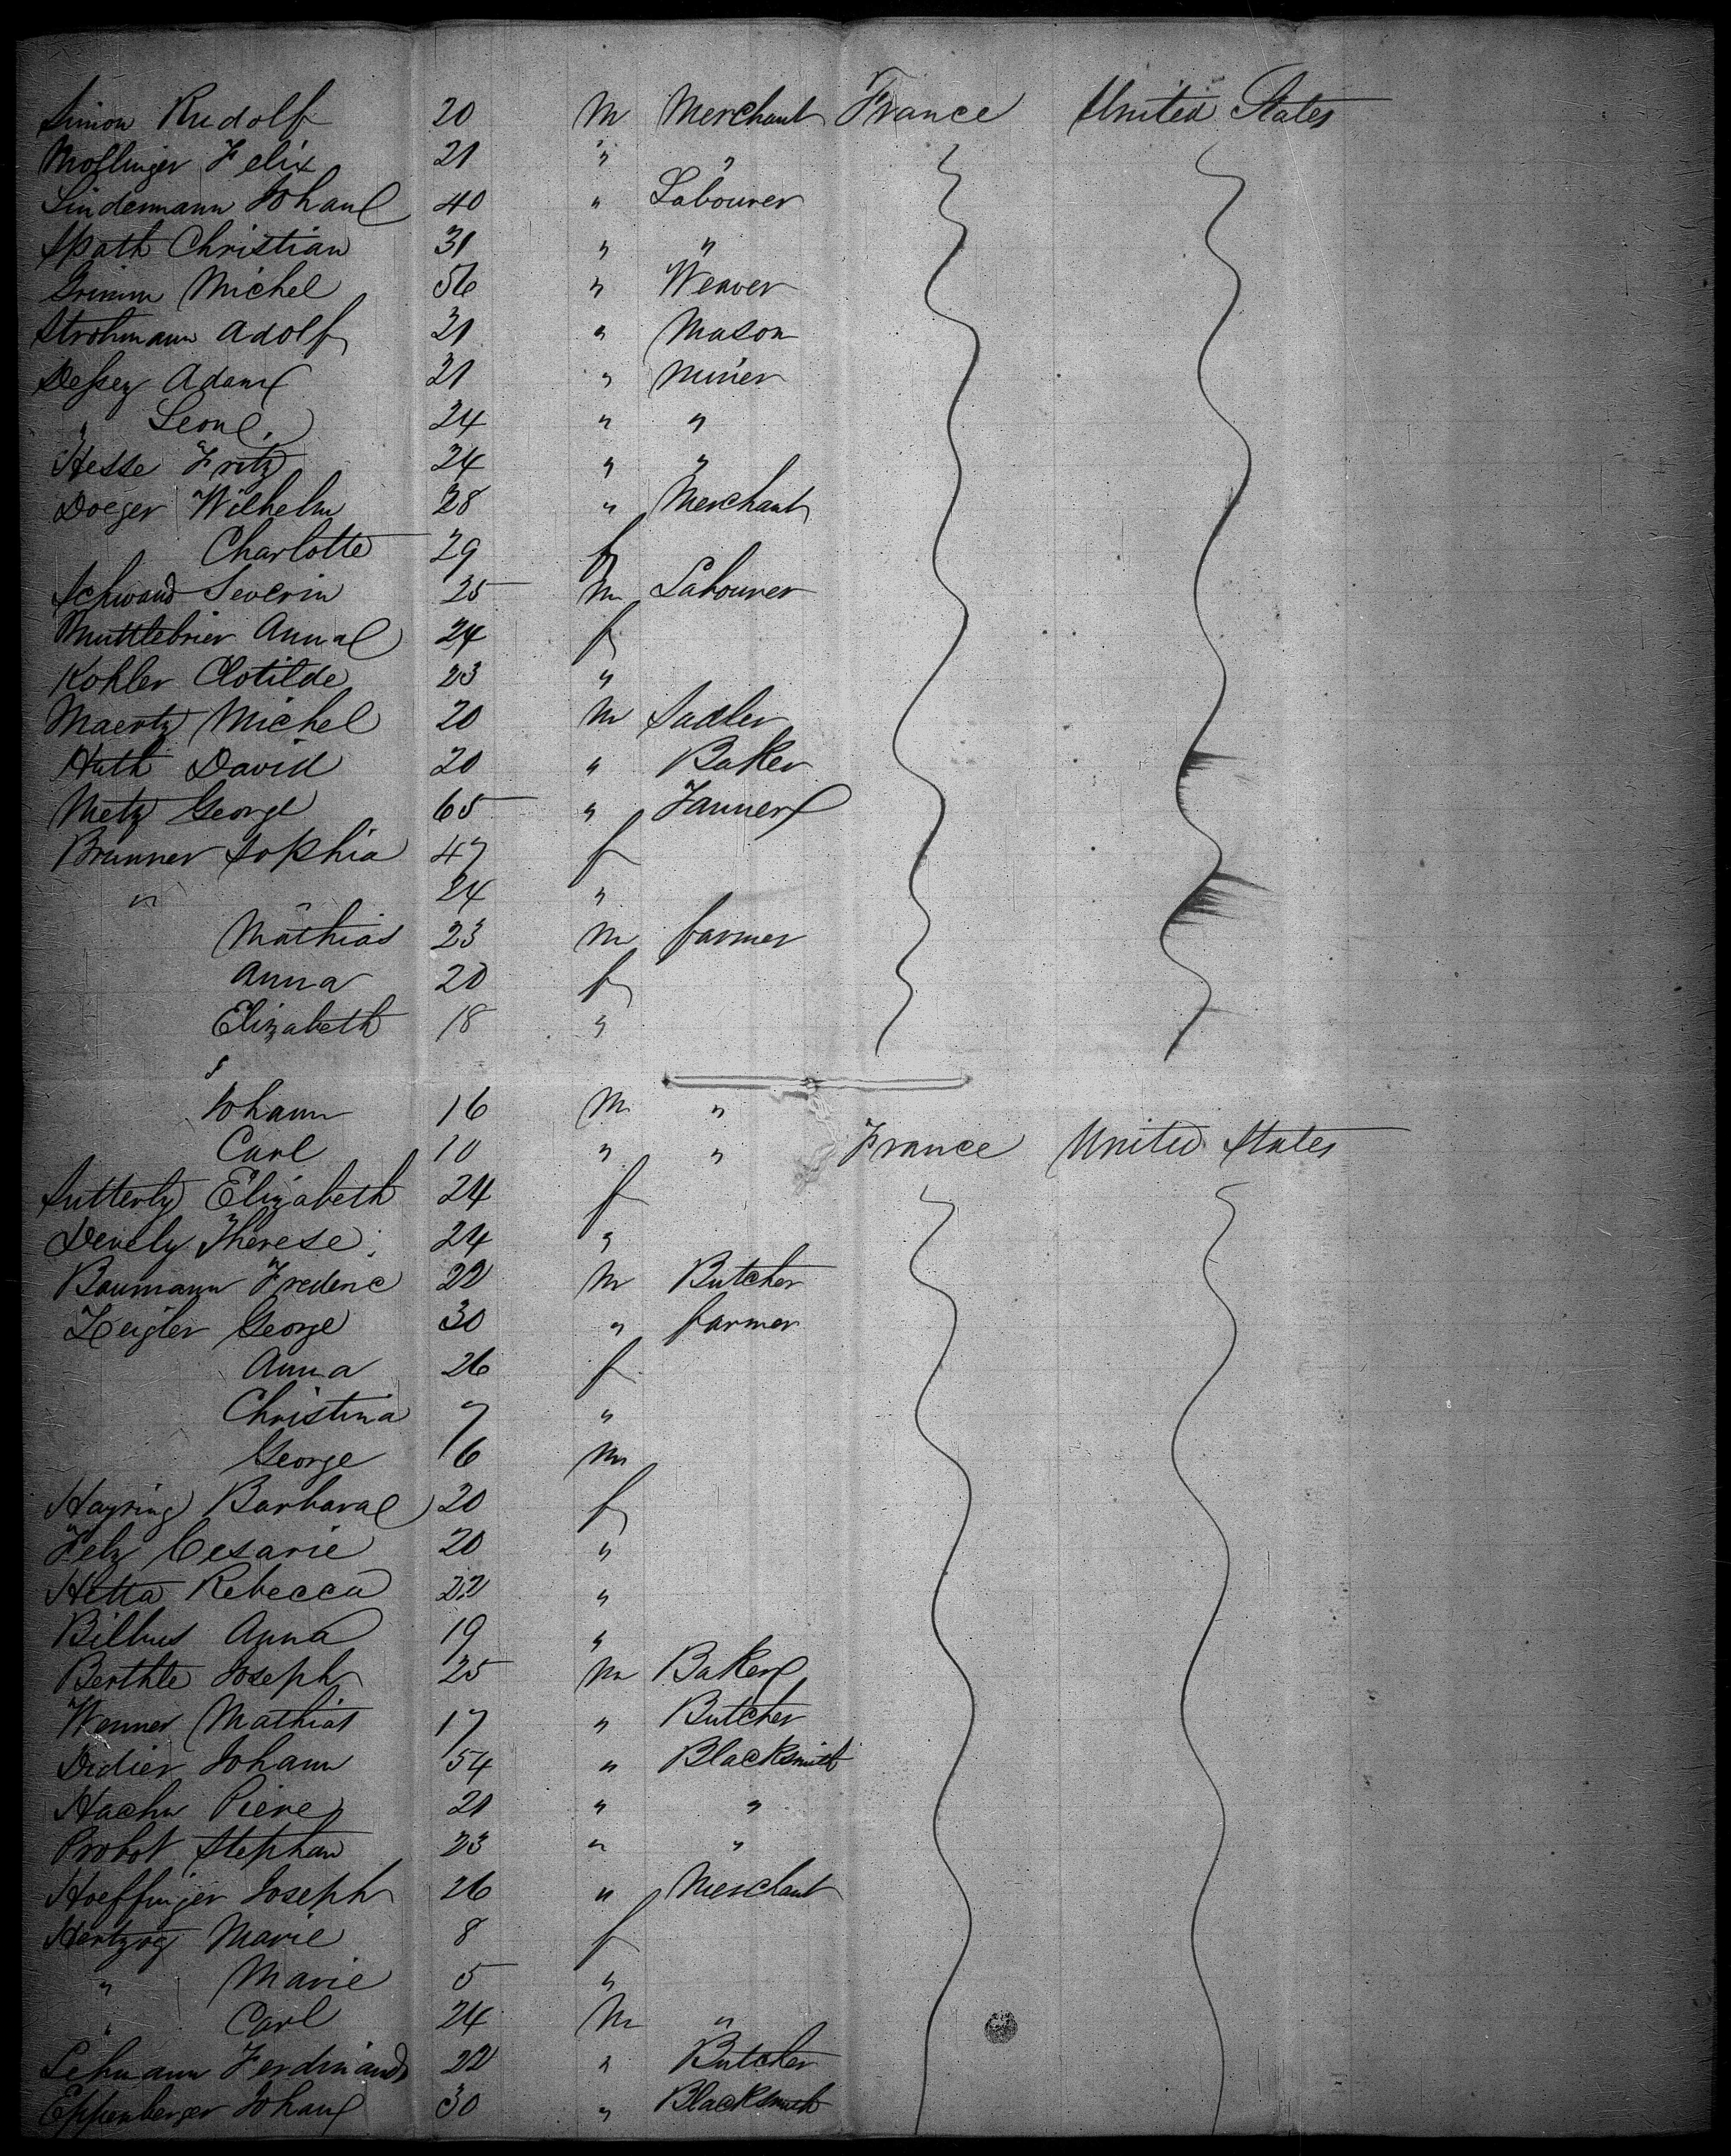 Simon Rudolf 20 m Merchant France United States
Mollinger Felix 21 " "
Lindermann Johann 40 " Labourer
Spath Christian 31 " "
Grimm Michel 56 " Weaver
Strohmann Adolf 31 " Mason
Adam 21 " Miner
" Leon 24 " "
Hesse Fritz 24 " "
Doeger Wilhelm 28 " Merchant
Charlotte 29 f
Schwand Severin 25 m Labourer
Muttlebrier Anna 24 f
Kohler Clotilde 23 "
Maertz Michel 20 m Sadler
Huth David 20 " Baker
Metz George 65 " Tanner
Brunner Sophia 47 f
" 24 "
Mathias 23 m farmer
Anna 20 f
Elizabeth 18 "
Johann 16 m "
Carl 10 " " France United States
Sutterly Elizabeth 24 f
Devely Therese 24 "
Baumann Frederic 22 m Butcher
Zeigler George 30 " farmer
Anna 26 f
Christina 7 "
George 6 m
Barbara 20 f
Felz Cesarie 20 "
Hetta Rebecca 22 "
Anna 19 "
Berthle Joseph 25 m Baker
Wenner Mathias 17 " Butcher
Didier Johann 54 " Blacksmith
Piere 21 " "
Probot Stephan 23 " "
Hoeffinger Joseph 26 " Merchant
Hertzog Marie 8 f
" Marie 5 "
" Carl 24 m "
Lehmann Ferdinand 22 " Butcher
Eppenberger Johann 30 " Blacksmith